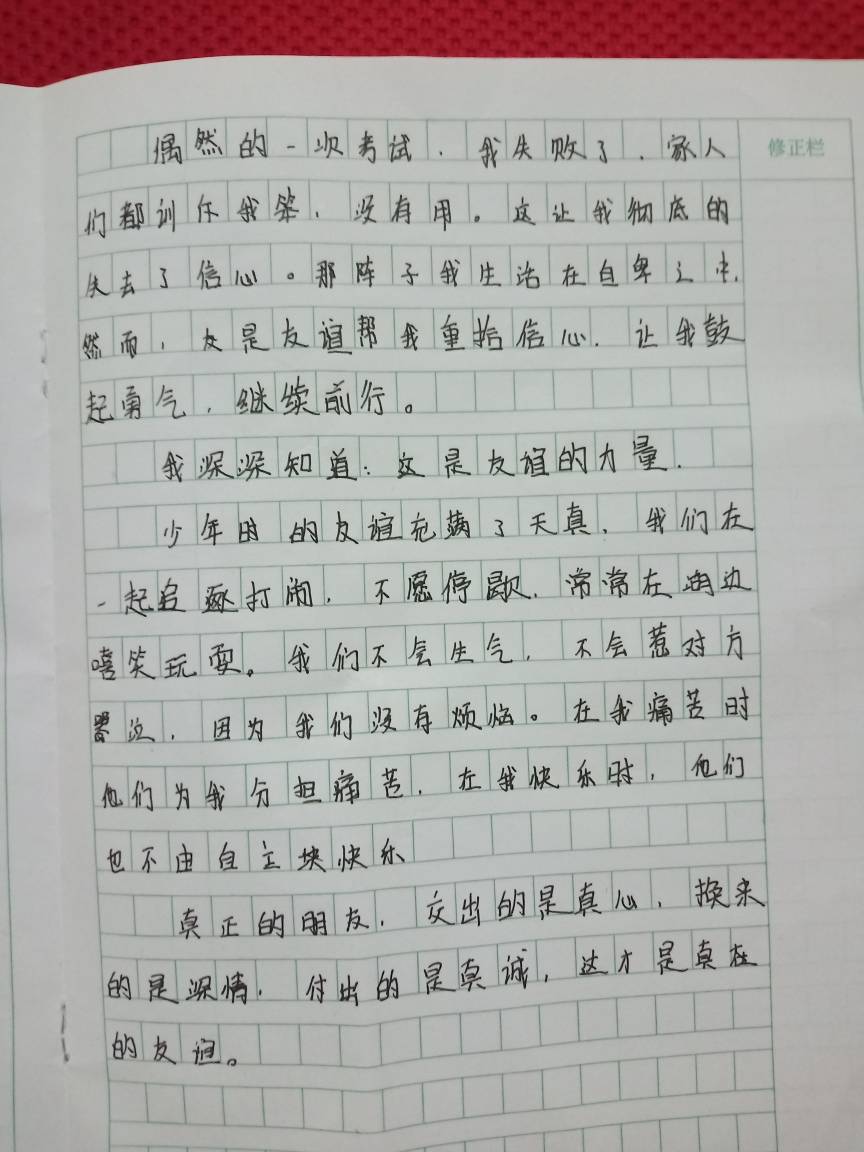 偶然的一次考试，我失败了，家人 修正栏
们都训斥我笨，没有用。这让我彻底的
失去了信心。那阵子我生活在自卑之中，
然而，友是友谊帮我重拾信心，让我鼓
起勇气，继续前行。
我深深知道：这是友谊的力量，
少年时的友谊充满了天真，我们在
一起追逐打闹，不愿停歇，常常在一起
嘻笑玩耍。我们不会生气，不会惹对方
哭泣，因为我们没有烦恼。在我痛苦时
他们为我分担痛苦，在我快乐时，他们
也不由自主块快乐
真正的朋友，交出的是真心，换来
的是深情，付出的是真诚，这才是真在
的友谊。